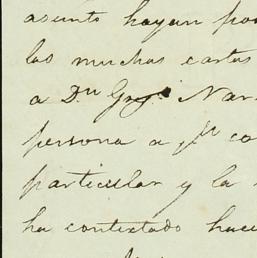 asunto hayan
las muchas cartas
a Dn Nar
persona a co
particular y la
ha contestado hace